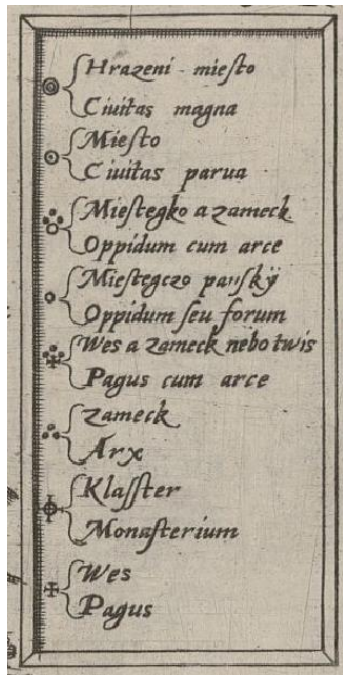 Hrazeni mieſto
Ciuitas magna
Mieſto
Ciuitas parua
Mieſtegko a zameck
Oppidum cum arce
Mieſtegczo panſkÿ
Oppidum ſeu forum
Wes a Zameck nebo twis
Pagus cum arce
Zameck
Arx
Klaſſter
Monaſterium
Wes
Pagus